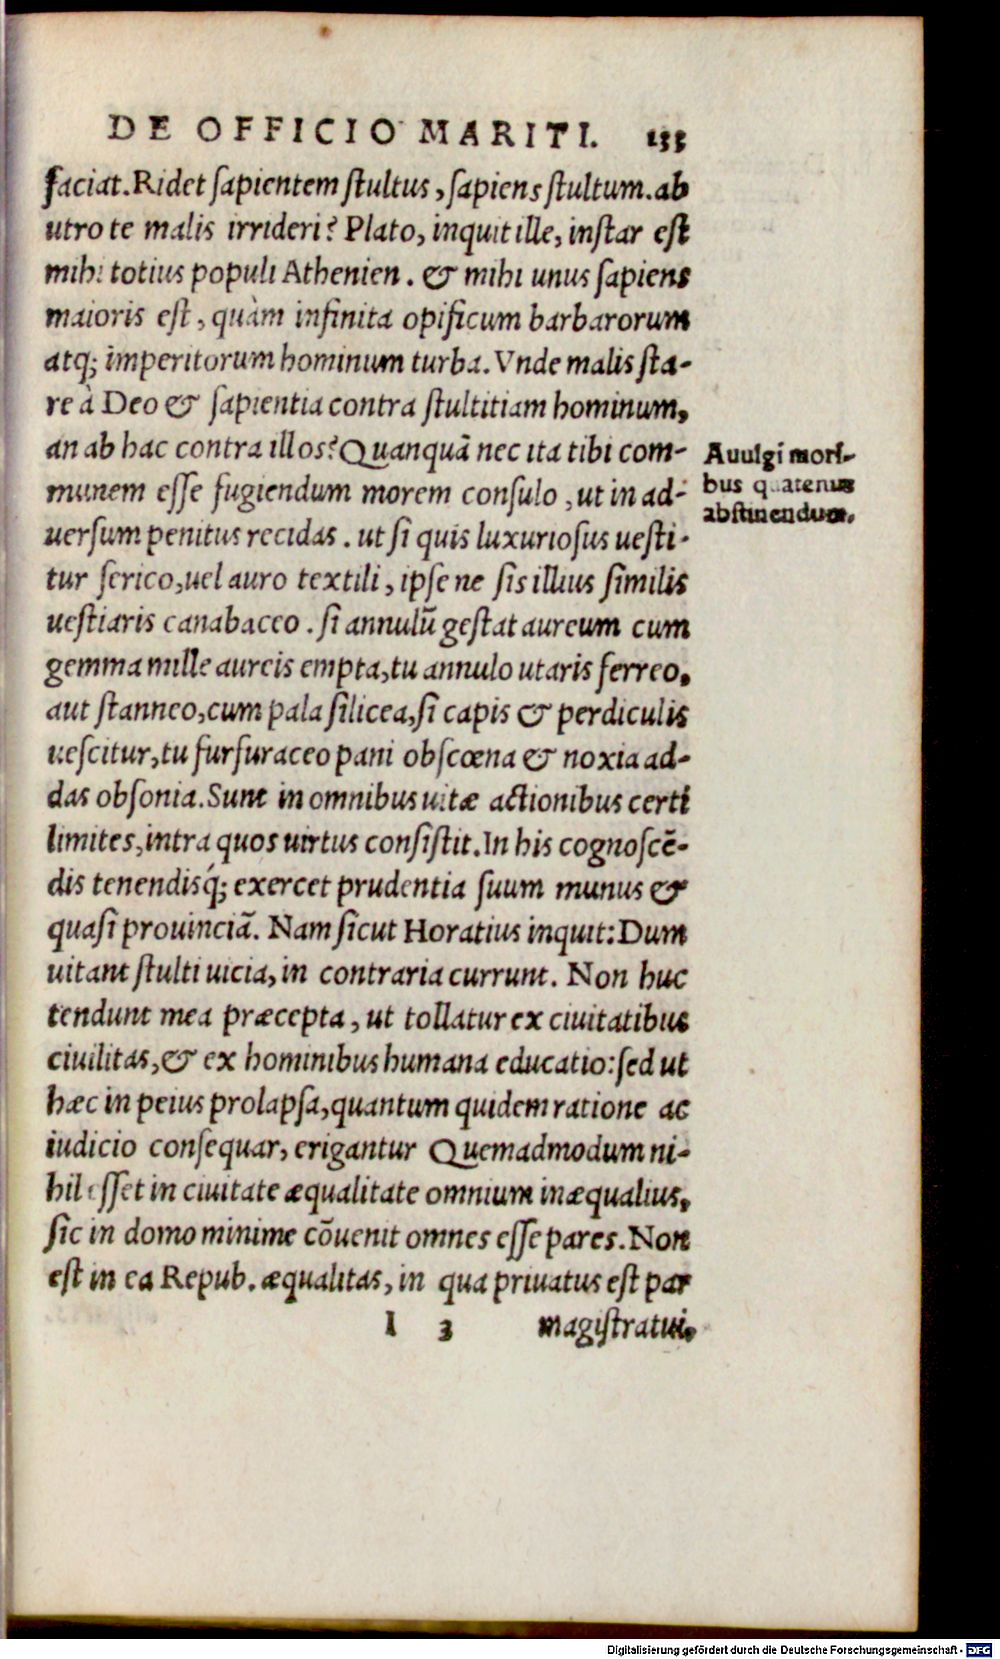 DE OFFICIO MARITI. 133
faciat. Ridet sapientem stultus, sapiens stultum. ab
utro te malis irrideri? Plato, inquit ille, instar est
mihi totius populi Athenien. & mihi unus sapiens
maioris est, quàm infinita opificum barbarorum
atq; imperitorum hominum turba. Vnde malis sta-
re à Deo & sapientia contra stultitiam hominum,
an ab hac contra illos? Quanquã nec ita tibi com-
munem esse fugiendum morem consulo, ut in ad-
uersum penitus recidas. ut si quis luxuriosus uesti-
tur serico, uel auro textili, ipse ne sis illius similis
uestiaris canabaceo. si annulũ gestat aureum cum
gemma mille aureis empta, tu annulo utaris ferreo,
aut stanneo, cum pala silicea, si capis & perdiculis
uescitur, tu furfuraceo pani obscœna & noxia ad-
das obsonia. Sunt in omnibus uitæ actionibus certi
limites, intra quos uirtus consistit. In his cognoscẽ-
dis tenendisq́; exercet prudentia suum munus &
quasi prouinciã. Nam sicut Horatius inquit: Dum
uitant stulti uicia, in contraria currunt. Non huc
tendunt mea præcepta, ut tollatur ex ciuitatibus
ciuilitas, & ex hominibus humana educatio: sed ut
hæc in peius prolapsa, quantum quidem ratione ac
iudicio consequar, erigantur Quemadmodum ni-
hil esset in ciuitate æqualitate omnium inæqualius,
sic in domo minime cõuenit omnes esse pares. Non
est in ea Repub. æqualitas, in qua priuatus est par
I 3 magistratui,
A uulgi mori-
bus quatenus
abstinendum.
Digitalisierung gefördert durch die Deutsche Forschungsgemeinschaft - DFG